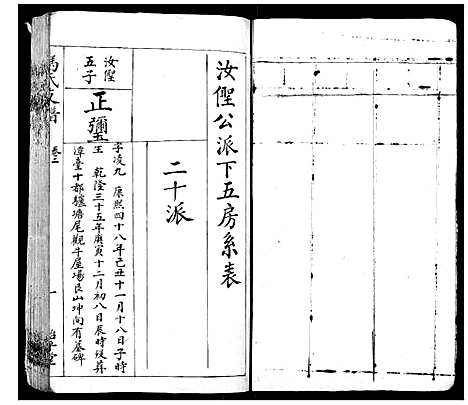 汝俚公派下五房系表
二十派
汝俚
五子
正
字凌九 康熙四十八年己丑十一月十八日子時
乾隆三十五年庚寅十二月初八日辰時歿葬
潭臺十都 塘尾觀牛屋場艮山坤向有墓碑
馬氏 譜
一